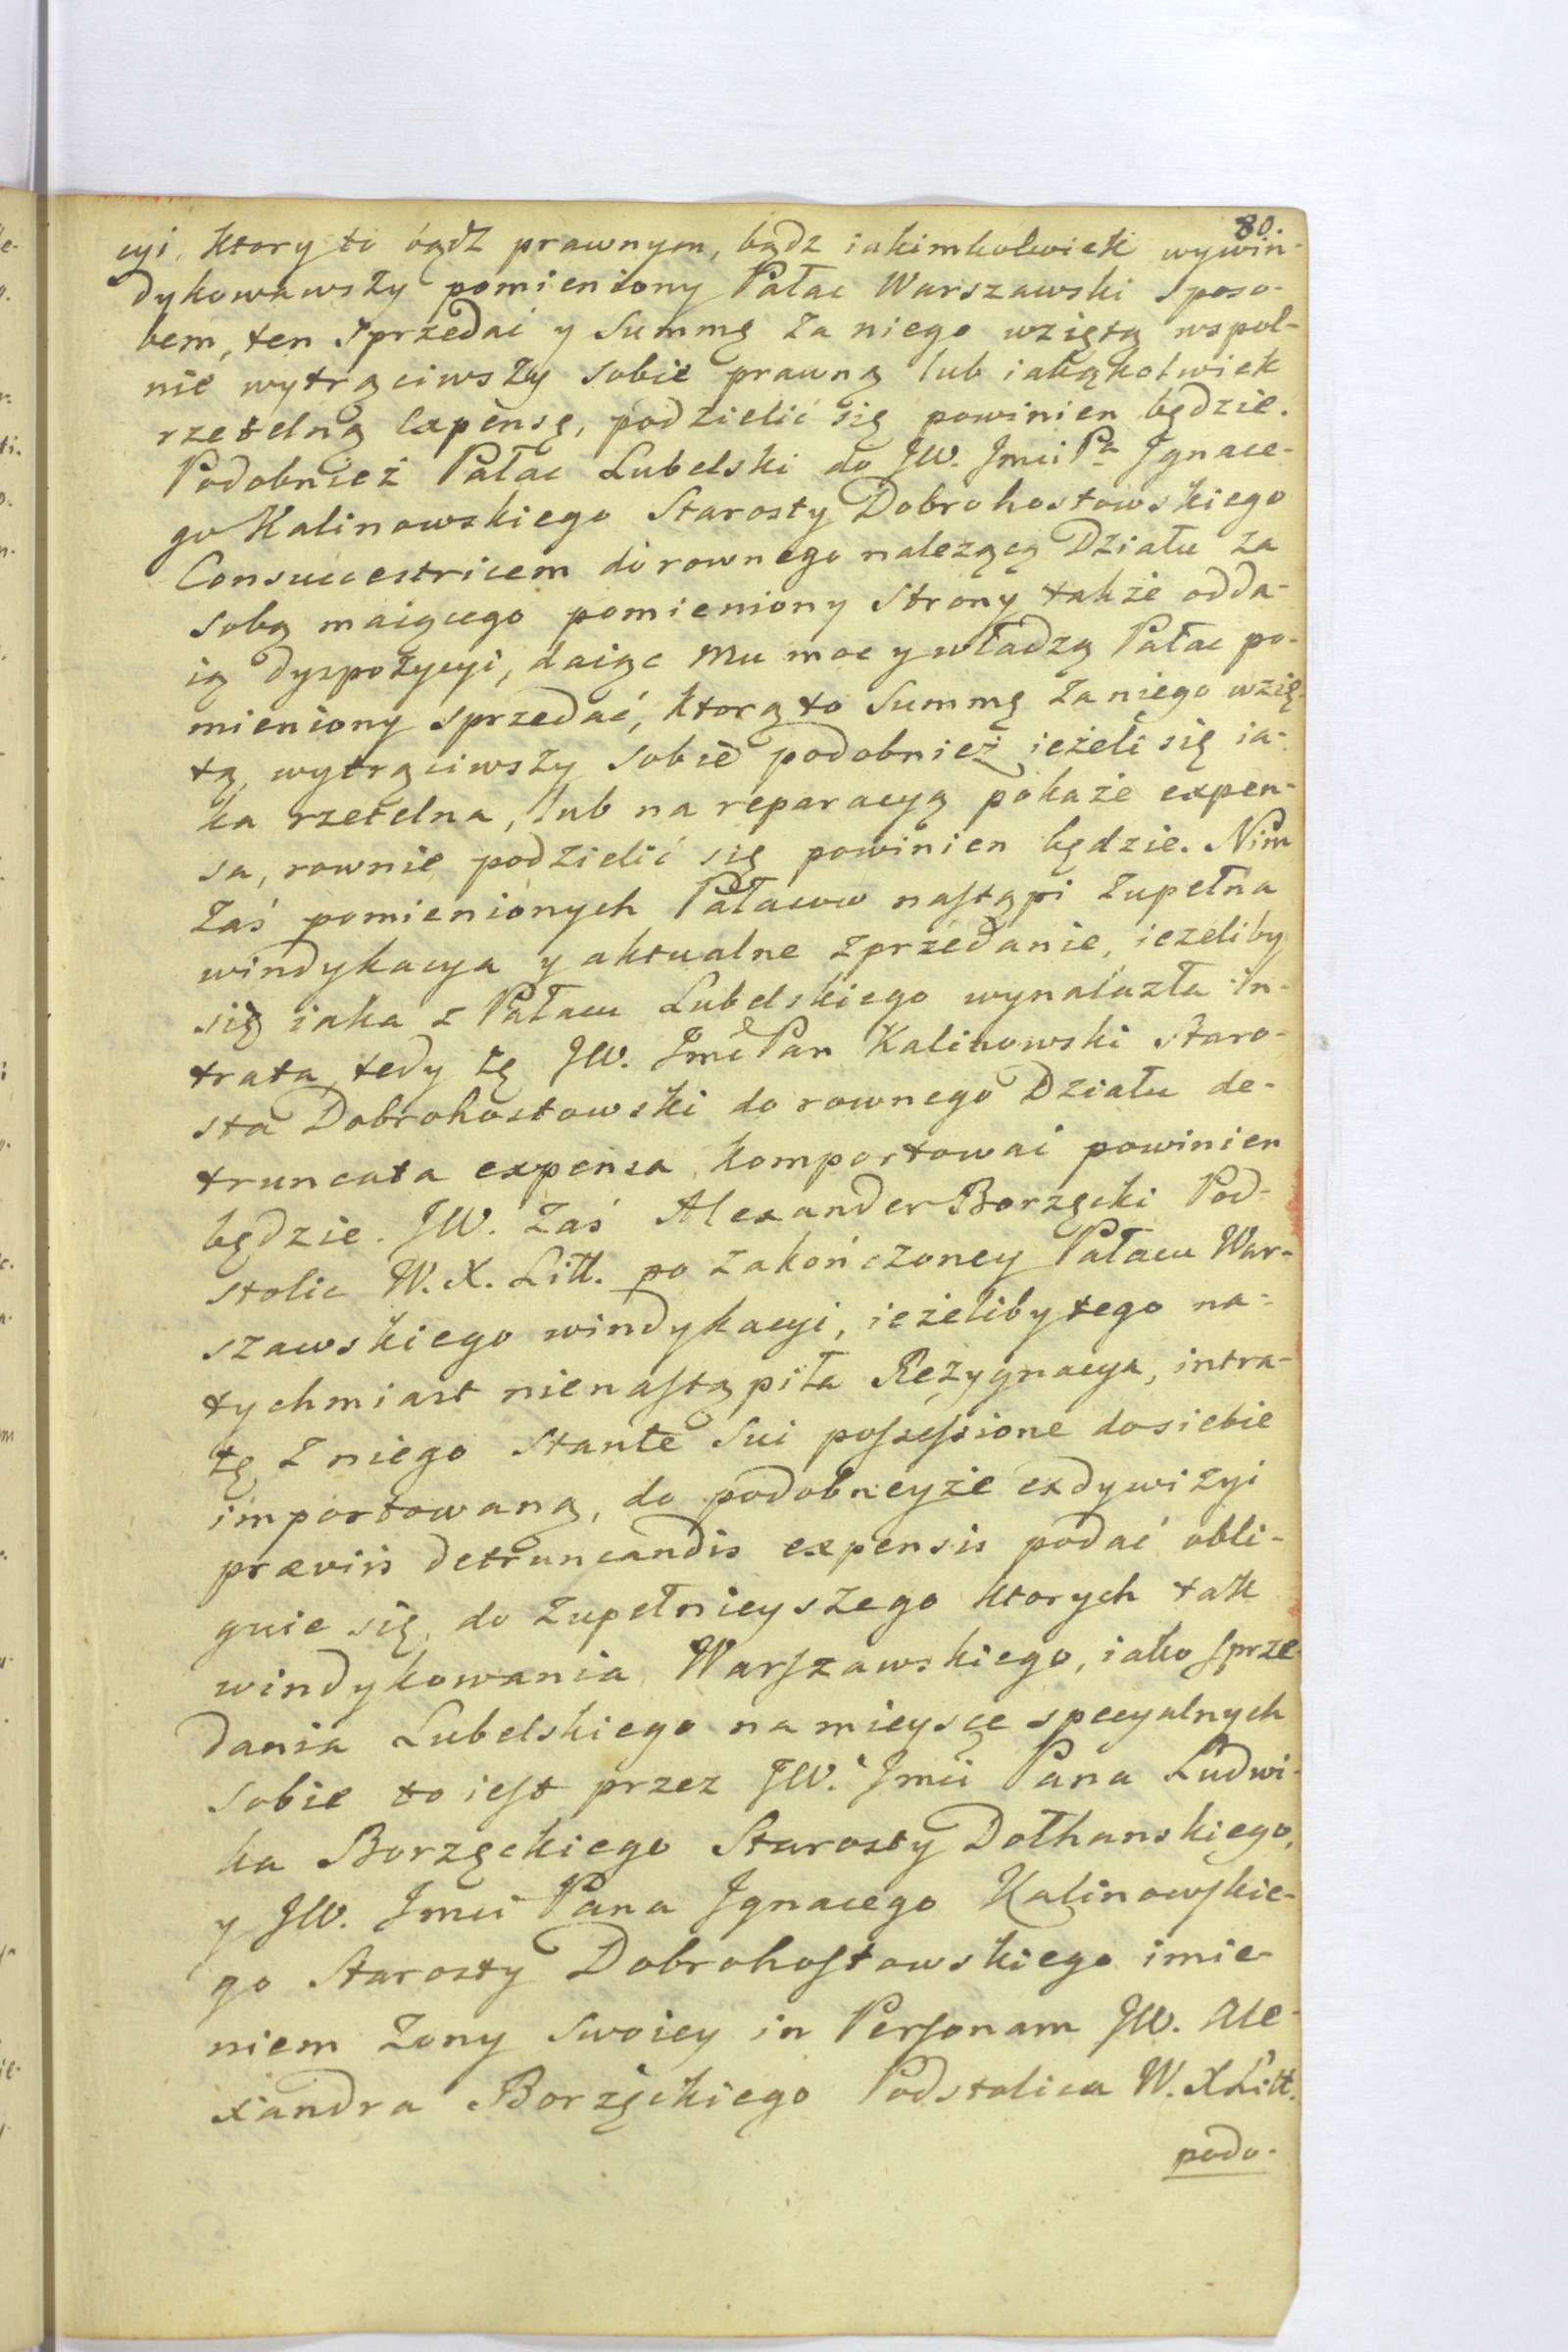 80.
cyi, ktory to bądź prawnym, bądz iakimkolwiek wywin-
dykowawszy pomieniony Pałac Warszawski sposo-
bem, ten sprzedać y Summę za niego wziętą wspol-
nie wytrąciwszy sobie prawną lub iakąkolwiek
rzetelną Expensę, podzielić się powinien będzie.
Podobnież Pałac Lubelski do JW. Jmci Pa Jgnace-
go Kalinowskiego Starosty Dobrohostowskiego
Consuccestricem do rownego należącą Działu za
sobą maiącego pomieniony Strony także odda-
ią dyspozycyi, daiąc mu moc y władzą Pałac po-
mieniony sprzedać, ktorą to Summę za niego wzię-
tą wytrąciwszy sobie podobnież ieżeli się ia-
ka rzetelna, lub na reparacyą pokaże expen-
sa, rownie podzielić się powinien będzie. Nim
zaś pomienionych Pałacow nastąpi zupełna
windykacya y aktualne zprzedanie, iezeliby
się iaka z Pałacu Lubelskiego wynalazła In-
trata, tedy tę JW. Jmć Pan Kalinowski Staro-
sta Dobrohostowski do rownego Działu de-
truncata expensa komportować powinien
będzie. JW. zaś Alexander Borzęcki Pod-
stolic W. X. Litt. po zakończoney Pałacu War-
szawskiego windykacyi, ieżeliby tego na-
tychmiast nienastąpiła Rezygnacya, intra-
tę z niego stante sui possessione do siebie
importowaną, do podobneyże exdywizyi
præviis detruncandis expensis podać obli-
guie się, do zupełnieyszego ktorych tak
windykowania Warszawskiego, iako sprze-
dania Lubelskiego na mieysce specyalnych
sobie to iest przez JW. Jmci Pana Ludwi-
ka Borzęckiego Starosty Dołhanskiego,
y JW. Jmci Pana Jgnacego Kalinowskie-
go Starosty Dobrohostowskiego imie-
niem Zony swoiey in Personam JW. Ale-
xandra Borzęckiego Podstolica W. X Litt.
podo-